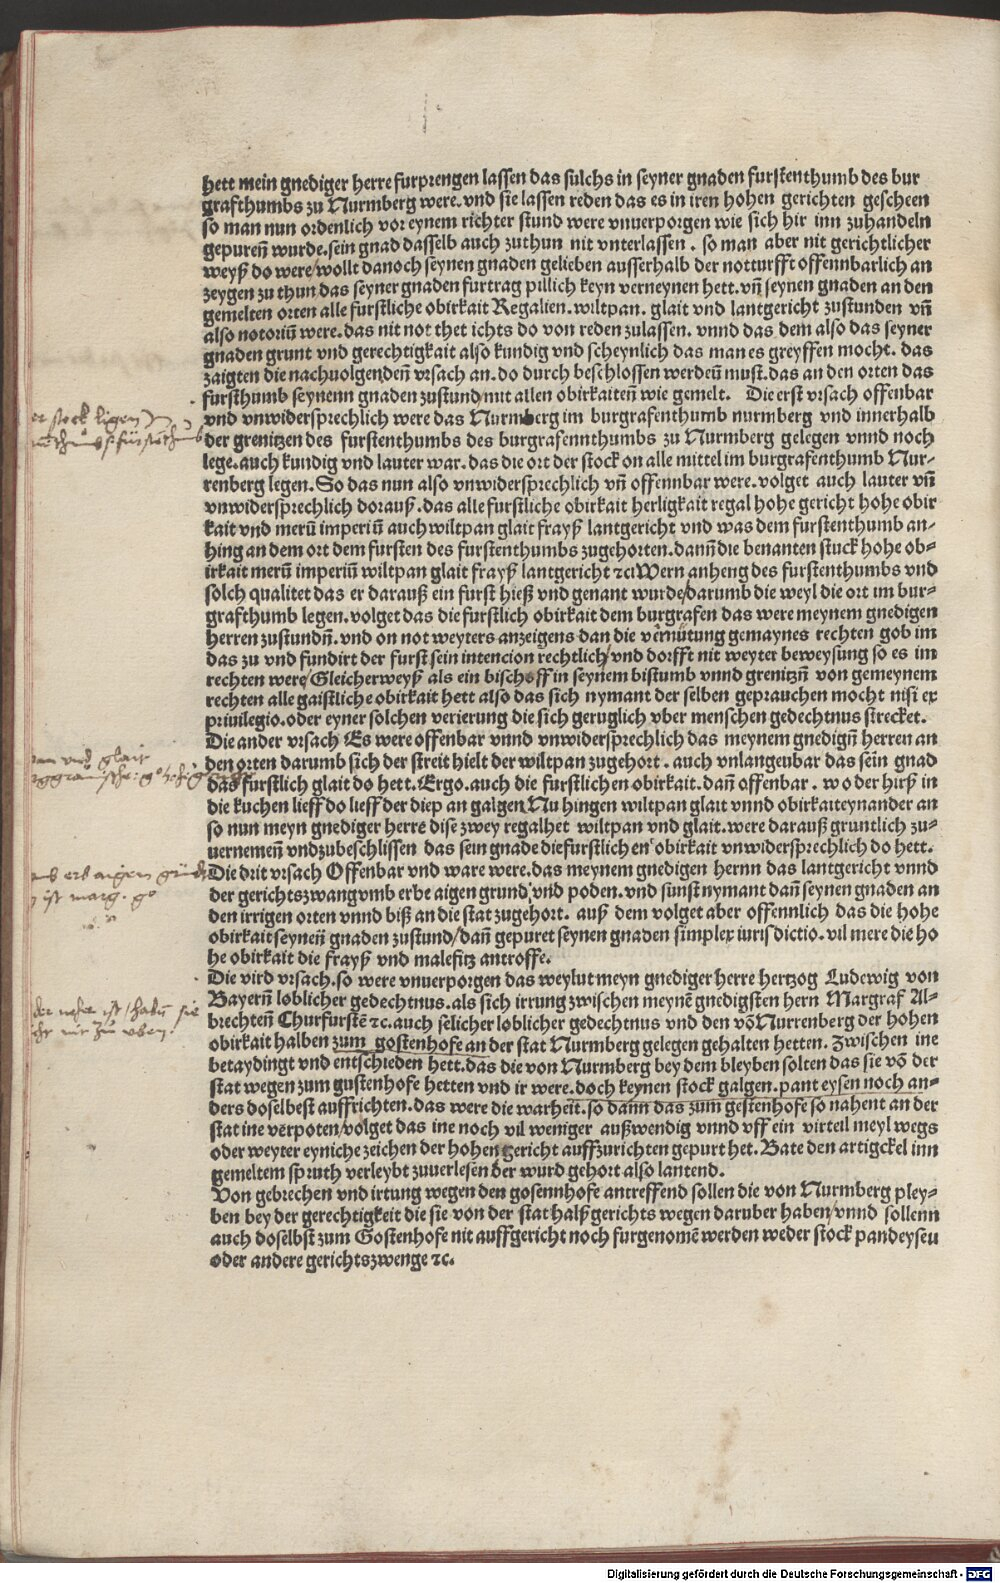 hett mein gnediger herre furprengen lassen das sulchs in seyner gnaden furstenthumb des bur
grafthumbs zu Nurmberg were. vnd sie lassen reden das es in iren hohen gerichten gescheen
so man nun ordenlich vor eynem richter stund were vnuerporgen wie sich hir inn zuhandeln
gepureñ wurde. sein gnad dasselb auch zuthun nit vnterlassen. so man aber nit gerichtlicher
weyß do were/wollt danoch seynen gnaden gelieben ausserhalb der notturfft offennbarlich an
zeygen zu thun/das seyner gnaden furtrag pillich keyn verneynen hett. vñ seynen gnaden an den
gemelten orten alle furstliche obirkait Regalien. wiltpan. glait vnd lantgericht zustunden vñ
also notoriũ were. das nit not thet ichts do von reden zulassen. vnnd das dem also das seyner
gnaden grunt vnd gerechtigkait also kundig vnd scheynlich das man es greyffen mocht. das
zaigten die nachuolgendeñ vrsach an. do durch beschlossen werdeñ must. das an den orten das
fursthumb seynenn gnaden zustund/mit allen obirkaiteñ wie gemelt. Die erst vrsach offenbar
vnd vnwidersprechlich were das Nurmberg im burgrafenthumb nurmberg vnd innerhalb
der grenitzen des furstenthumbs des burgrafennthumbs zu Nurmberg gelegen vnnd noch
lege. auch kundig vnd lauter war. das die ort der stock on alle mittel im burgrafenthumb Nur-
renberg legen. So das nun also vnwidersprechlich vñ offennbar were. volget auch lauter vñ
vnwidersprechlich dorauß. das alle furstliche obirkait herligkait regal hohe gericht hohe obir
kait vnd merũ imperiũ auch wiltpan glait frayß lantgericht vnd was dem furstenthumb an-
hing an dem ort dem fursten des furstenthumbs zugehorten. danñ die benanten stuck hohe ob-
irkait merũ imperiũ wiltpan glait frayß lantgericht ⁊c Wern anheng des furstenthumbs vnd
solch qualitet das er darauß ein furst hieß vnd genant wurde/darumb die weyl die ort im bur-
grafthumb legen. volget das die furstlich obirkait dem burgrafen das were meynem gnedigen
herren zustundñ. vnd on not weyters anzeigens dan die vermutung gemaynes rechten gob im
das zu vnd fundirt der furst sein intencion rechtlich/vnd dorfft nit weyter beweysung so es im
rechten were/Gleicherweyß als ein bischoff in seynem bistumb vnnd grenitzñ von gemeynem
rechten alle gaistliche obirkait hett also das sich nymant der selben geprauchen mocht nisi ex
priuilegio. oder eyner solchen verierung die sich geruglich vber menschen gedechtnus strecket.
Die ander vrsach Es were offenbar vnnd vnwidersprechlich das meynem gnedigñ herren an
den orten darumb sich der streit hielt der wiltpan zugehort. auch vnlangeubar das sein gnad
das furstlich glait do hett. Ergo. auch die furstlichen obirkait. dañ offenbar. wo der hirß in
die kuchen lieff do lieff der diep an galgen Nu hingen wiltpan glait vnnd obirkait eynander an
so nun meyn gnediger herre dise zwey regalhet wiltpan vnd glait. were darauß gruntlich zu-
uernemeñ vndzubeschlissen das sein gnade diefurstlich en obirkait vnwidersprechlich do hett.
Die drit vrsach Offenbar vnd ware were. das meynem gnedigen hernn das lantgericht vnnd
der gerichtszwangvmb erbe aigen grund vnd poden. vnd sunst nymant dañ seynen gnaden an
den irrigen orten vnnd biß an die stat zugehort. auß dem volget aber offennlich das die hohe
obirkait seyneñ gnaden zustund/dañ gepuret seynen gnaden simplex iurisdictio. vil mere die ho
he obirkait die frayß vnd malefitz antroffe.
Die vird vrsach. so were vnuerporgen das weylut meyn gnediger herre hertzog Ludewig von
Bayerñ loblicher gedechtnus. als sich irrung zwischen meynẽ gnedigsten hern Margraf Al-
brechteñ Churfurstẽ ⁊c. auch selicher loblicher gedechtnus vnd den võ Nurrenberg der hohen
obirkait halben zum gostenhofe an der stat Nurmberg gelegen gehalten hetten. Zwischen ine
betaydingt vnd entschieden hett. das die von Nurmberg bey dem bleyben solten das sie võ der
stat wegen zum gustenhofe hetten vnd ir were. doch keynen stock galgen. pant eysen noch an-
ders doselbest auffrichten. das were die warheit. so dann das zum gestenhofe so nahent an der
stat ine verpoten/volget das ine noch vil weniger außwendig vnnd vff ein virteil meyl wegs
oder weyter eyniche zeichen der hohen gericht auffzurichten gepurt het. Bate den artigckel inn
gemeltem spruth verleybt zuuerlesen der wurd gehort also lantend.
Von gebrechen vnd irtung wegen den gosennhofe antreffend sollen die von Nurmberg pley-
ben bey der gerechtigkeit die sie von der stat halßgerichts wegen daruber haben/vnnd sollenn
auch doselbst zum Gostenhofe nit auffgericht noch furgenomẽ werden weder stock pandeyseu
oder andere gerichtszwenge ⁊c.
er stock ligen
vnd glait
erb aigen
ist marg. g°
ist/habñ sie
nit zu vben.
Digitalisierung gefördert durch die Deutsche Forschungsgemeinschaft - DFG